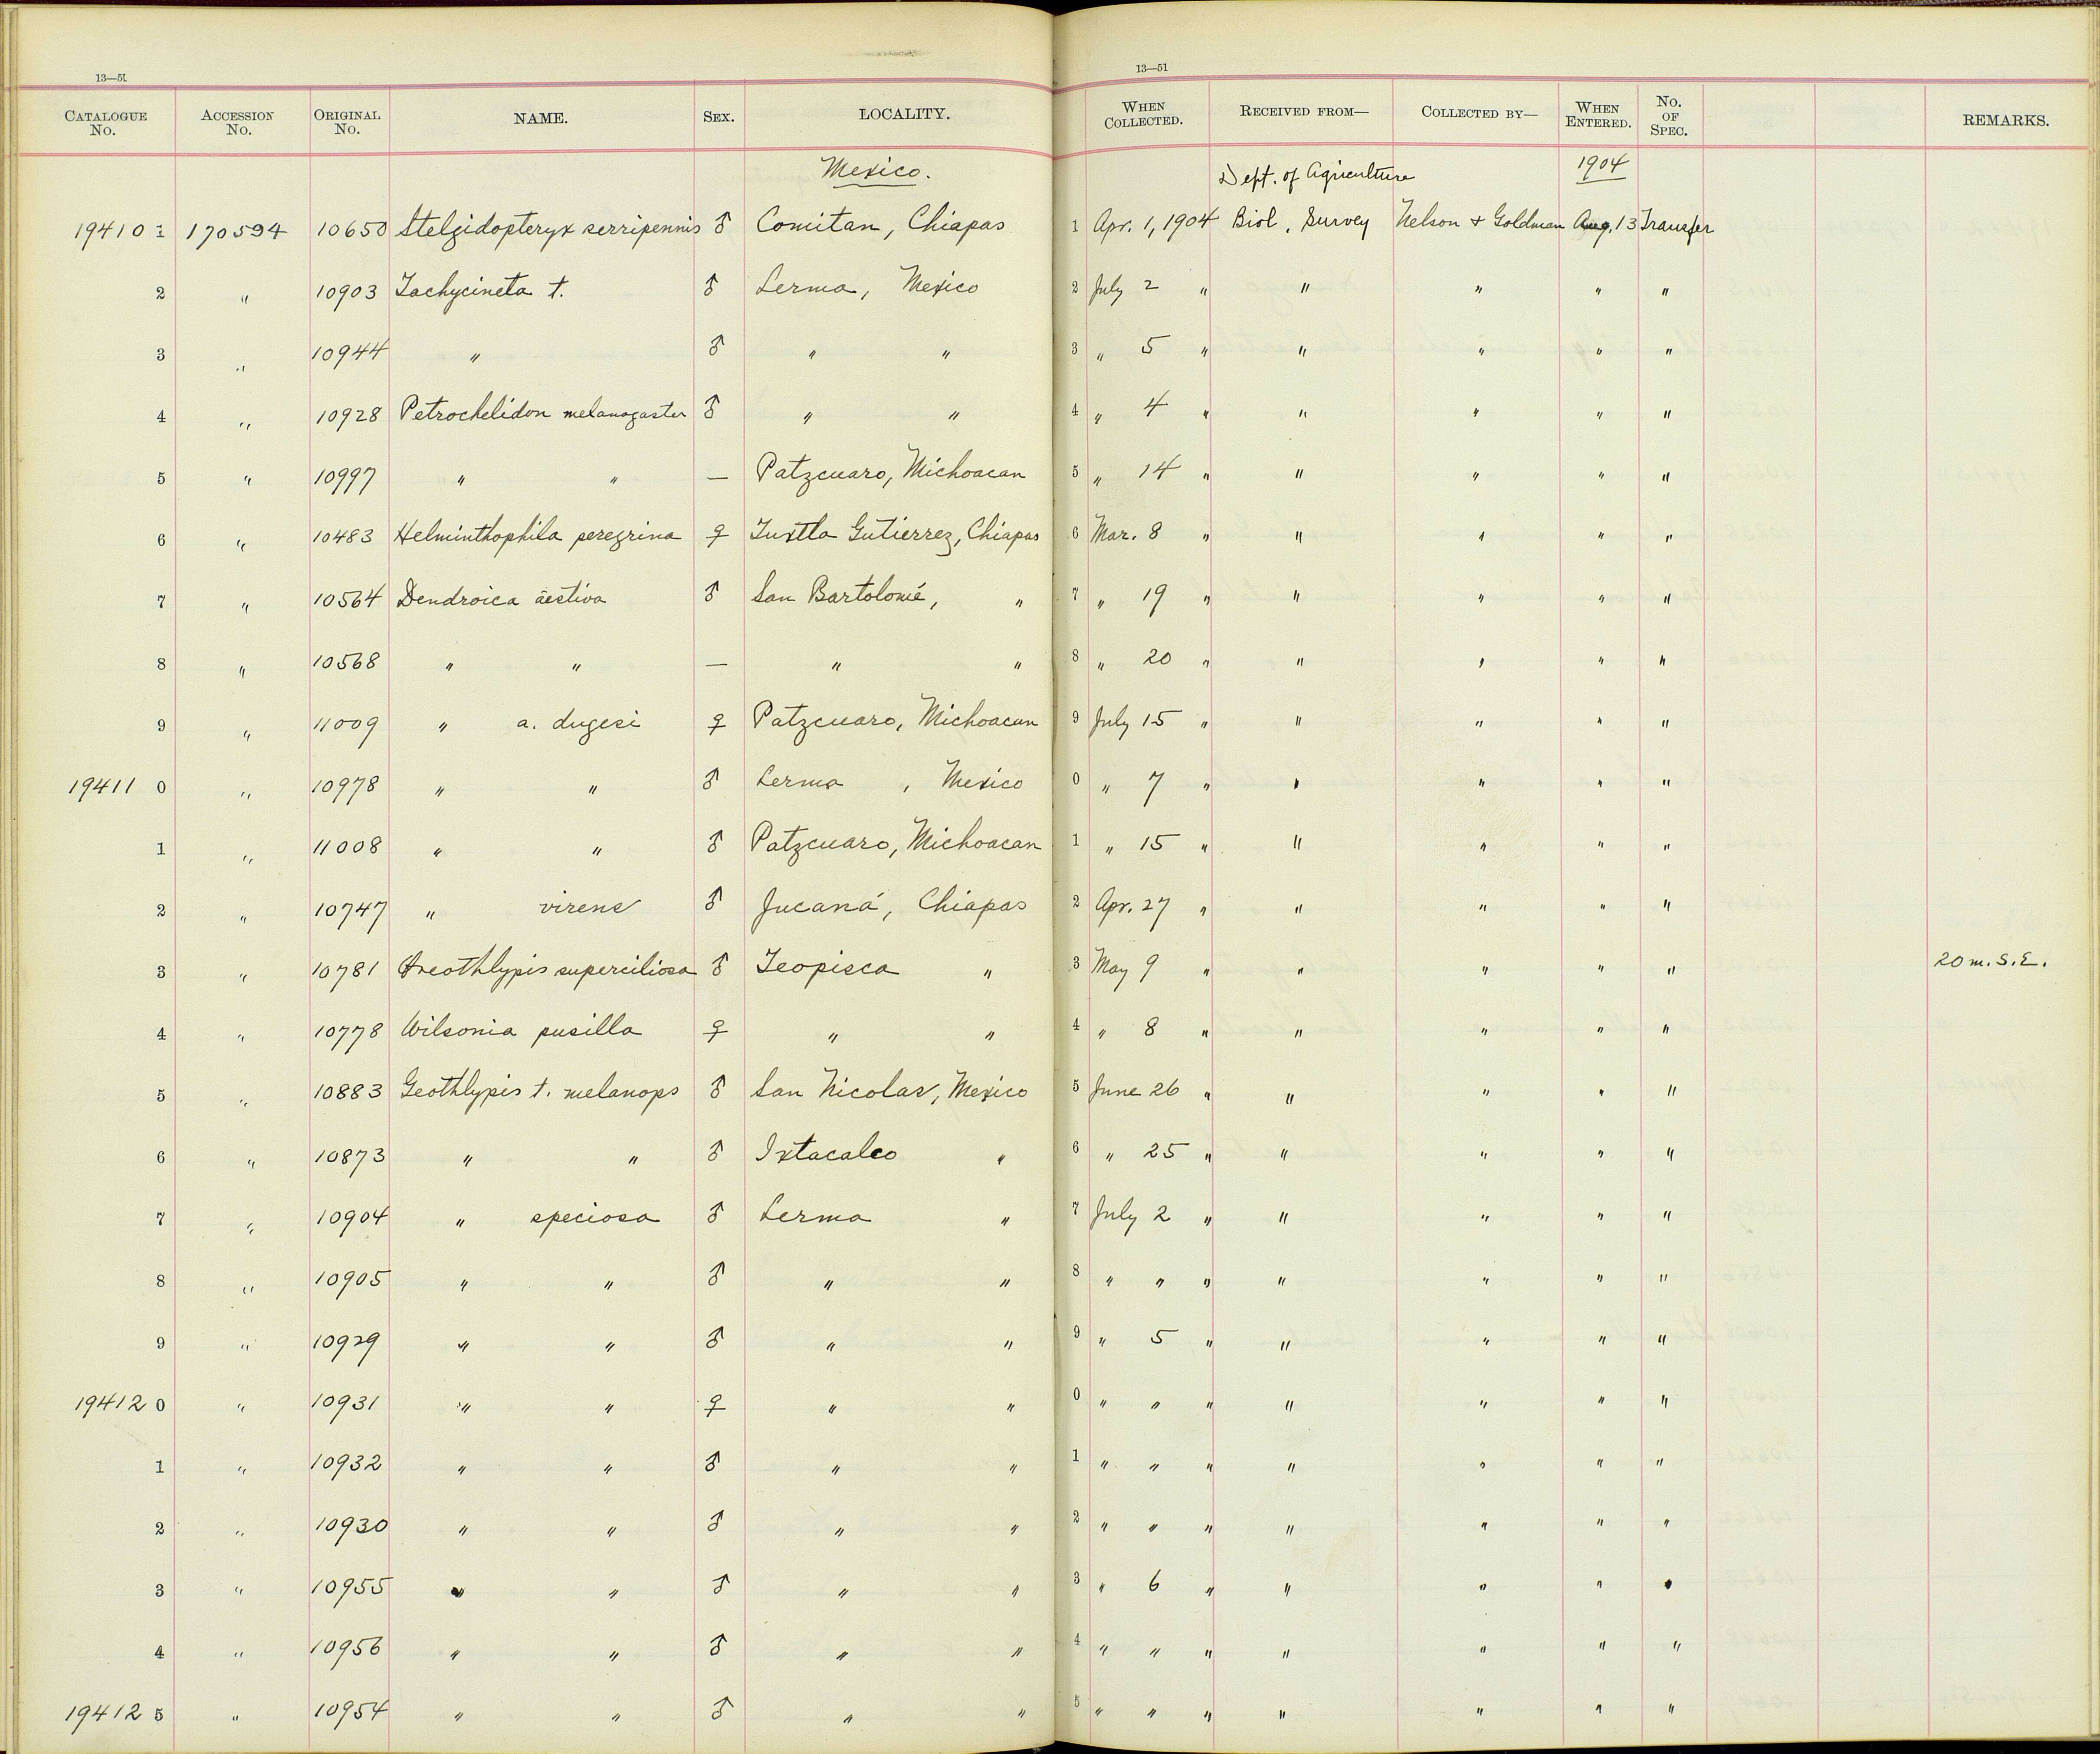 13—51
13—51
CATALOGUE No. ACCESSION No. ORIGINAL No. NAME. SEX. LOCALITY. WHEN COLLECTED. RECEIVED FROM— COLLECTED BY— WHEN ENTERED. No. OF SPEC. REMARKS.
Mexico. Dept. of Agriculture 1904
19410 1 170594 10650 Stelgidopteryx serripennis ♂ Comitan, Chiapas 1 Apr. 1, 1904 Biol. Survey Nelson & Goldman Aug. 13 Transfer
2 " 10903 Tachycineta t. ♂ Lerma, Mexico 2 July 2 " " " " "
3 " 10944 " ♂ " " 3 " 5 " " " " "
4 " 10928 Petrochelidon melanogaster ♂ " " 4 " 4 " " " " "
5 " 10997 " " — Patzcuaro, Michoacan 5 " 14 " " " " "
6 " 10483 Helminthophila peregrina ♀ Tuxtla Gutierrez, Chiapas 6 Mar. 8 " " " " "
7 " 10564 Dendroica aestiva ♂ San Bartolomé, " 7 " 19 " " " " "
8 " 10568 " " — " " 8 " 20 " " " " "
9 " 11009 " a. dugesi ♀ Patzcuaro, Michoacan 9 July 15 " " " " "
19411 0 " 10978 " " ♂ Lerma , Mexico 0 " 7 " " " " "
1 " 11008 " " ♂ Patzcuaro, Michoacan 1 " 15 " " " " "
2 " 10747 " virens ♂ Jucaná, Chiapas 2 Apr. 27 " " " " "
3 " 10781 Oreothlypis superciliosa ♂ Teopisca " 3 May 9 " " " " " 20 m. S.E.
4 " 10778 Wilsonia pusilla ♀ " " 4 " 8 " " " " "
5 " 10883 Geothlypis t. melanops ♂ San Nicolas, Mexico 5 June 26 " " " " "
6 " 10873 " " ♂ Ixtacalco " 6 " 25 " " " " "
7 " 10904 " speciosa ♂ Lerma " 7 July 2 " " " " "
8 " 10905 " " ♂ " " 8 " " " " " " "
9 " 10929 " " ♂ " " 9 " 5 " " " " "
19412 0 " 10931 " " ♀ " " 0 " " " " " " "
1 " 10932 " " ♂ " " 1 " " " " " " "
2 " 10930 " " ♂ " " 2 " " " " " " "
3 " 10955 " " ♂ " " 3 " 6 " " " " "
4 " 10956 " " ♂ " " 4 " " " " " " "
19412 5 " 10954 " " ♂ " " 5 " " " " " " "